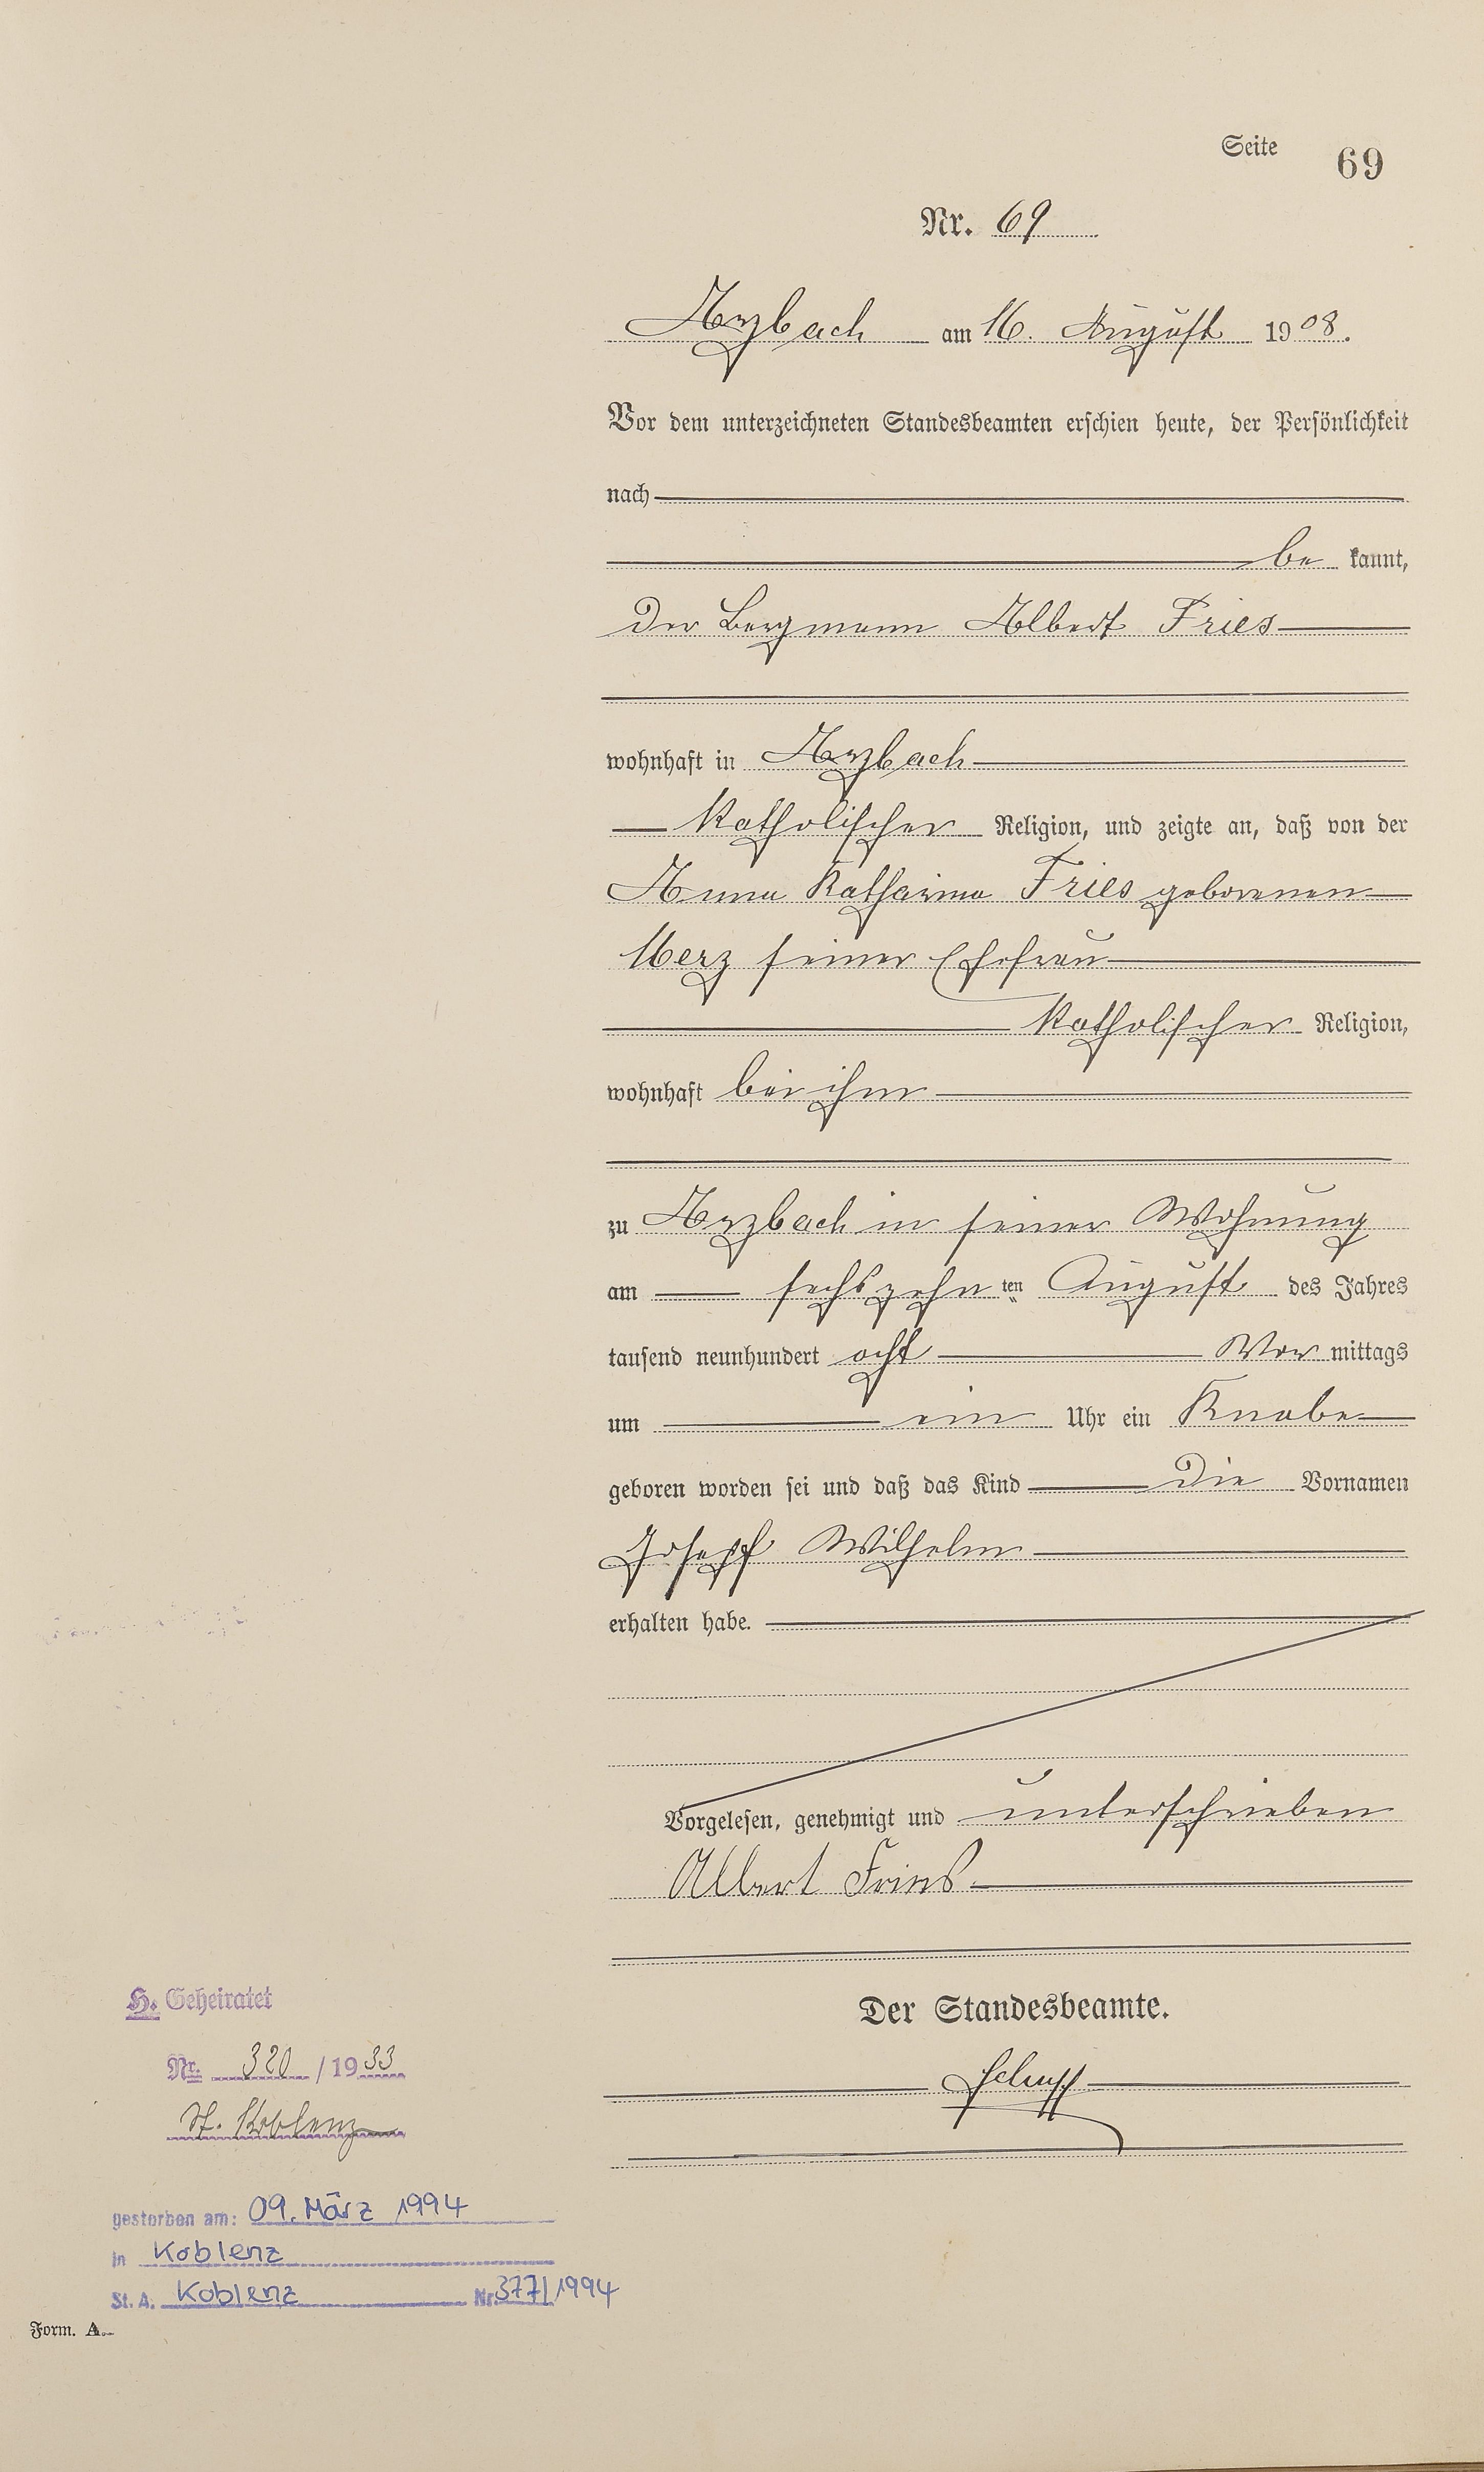 Seite 69
Nr. 69
Arzbach am 16. August 1908.
Vor dem unterzeichneten Standesbeamten erschien heute, der Persönlichkeit
nach
be kannt,
der Bergmann Albert Fries
wohnhaft in Arzbach
katholischer Religion, und zeigte an, daß von der
Anna Katharina Fries geborenen
Merz seiner Ehefrau
katholischer Religion,
wohnhaft bei ihm
zu Arzbach in seiner Wohnung
am sechszehn ten August des Jahres
tausend neunhundert acht Vor mittags
um ein Uhr ein Knabe
geboren worden sei und daß das Kind die Vornamen
Joseph Wilhelm
erhalten habe.
Vorgelesen, genehmigt und unterschrieben
Albert Fries
Der Standesbeamte.
H. Geheiratet
Nr. 320 / 1933
St. Koblenz
gestorben am: 09. März 1994
in Koblenz
St. A. Koblenz Nr. 377/1994
Form. A.